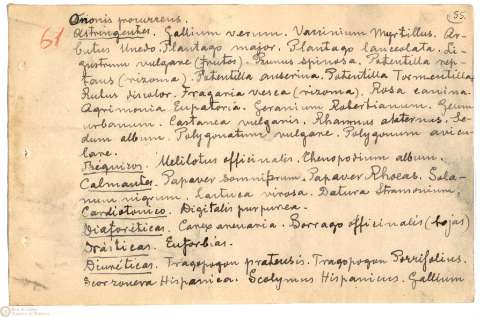 Ononis procurrens
55.
61
Astringentes. Gallium verum. Vaninium Myrtillus. Ar-
butus Unedo. Plantago major. Plantago lanceolata. Li-
gustrum vulgare (frutos). Prunus spinosa. Potentilla rep-
tans (rizoma). Potentilla anserina. Potentilla Tormentilla
Rubus discolor. Fragaria vesca (rizoma). Rosa canina.
Agrimonia Eupatoria. Geranium Robertianum. Geum
urbanum. Castanea vulgaris. Rhamnus alaternus. Se-
dum album. Polygonatum vulgare. Polygonum avicu-
lare.
Béquicos. Melilotus officinalis. Chenopodium album.
Calmantes. Papaver somniferum. Papaver Rhoeas. Sola-
num nigrum. Lactuca virosa. Datura Stramonium.
Cardiotónico. Digitalis purpurea.
Diaforéticas. Carex arenaria. Borrago officinalis (hojas)
Drásticas. Euforbias.
Diuréticas. Tragopogon pratensis. Tragopogon Porrifolius.
Scorzonera Hispanica. Scolymus Hispanicus. Gallium